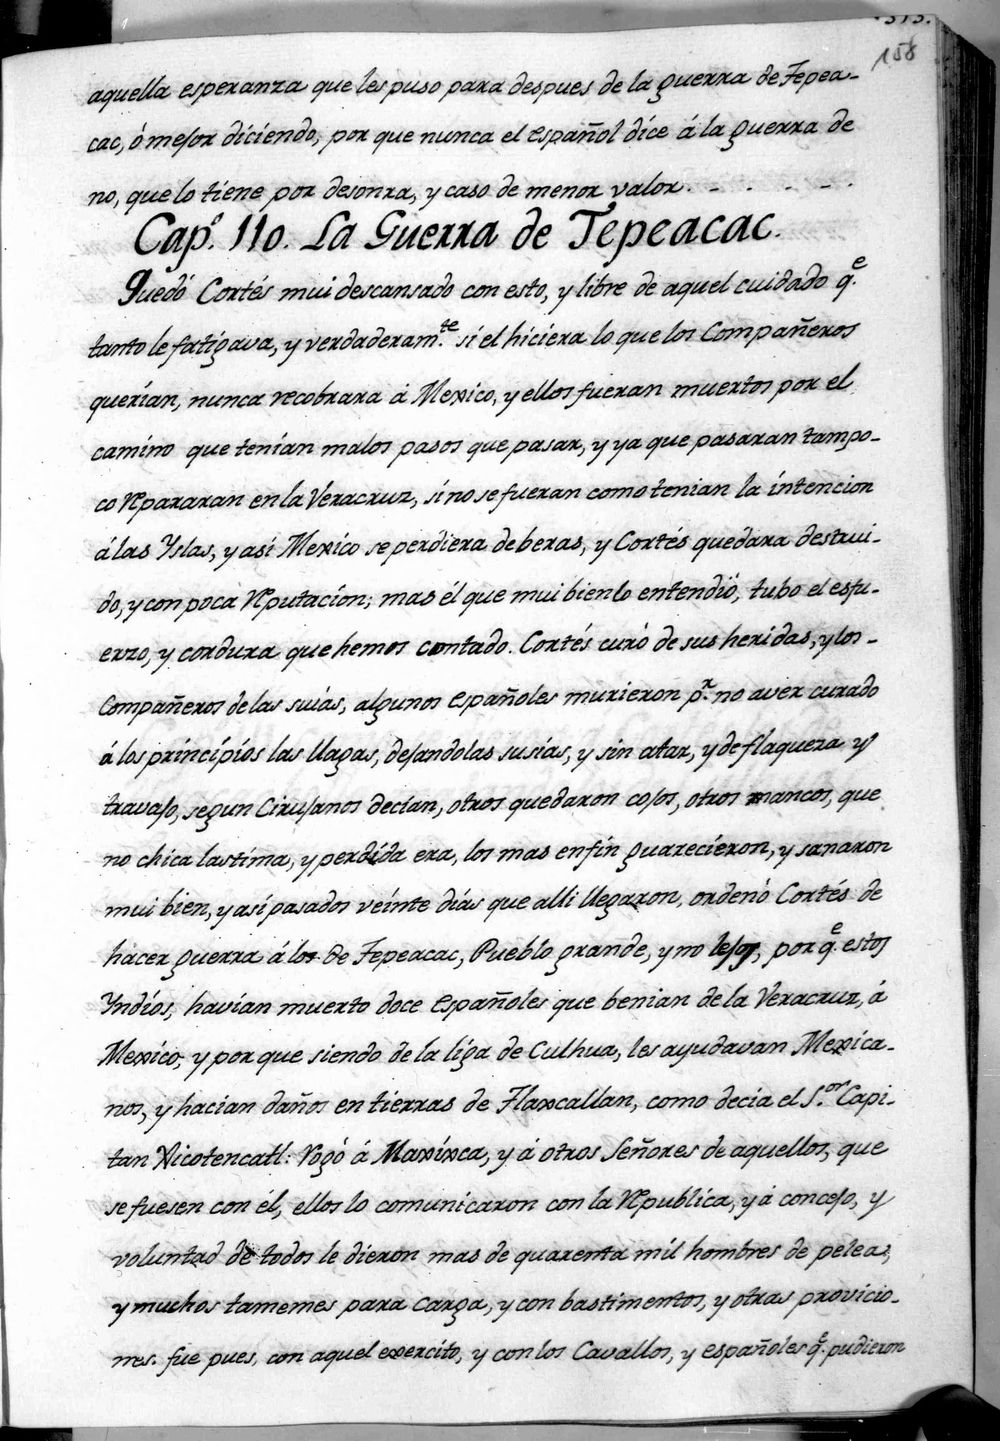 313.
158
aquella esperanza que les puso para despues de la guerra de Tepea-
cac, ó mejor diciendo, por que nunca el español dice á la guerra de
no, que lo tiene por desonra, y caso de menor valor. - - - - -
Cap.º 110. La Guerra de Tepeacac.
Quedó Cortés mui descansado con esto, y libre de aquel cuidado q.e
tanto le fatigava, y verdaderam.te si el hiciera lo que los Compañeros
querian, nunca recobrara á Mexico, y ellos fueran muertos por el
camino que tenian malos pasos que pasar, y ya que pasaran tampo-
co repararan en la Veracruz, sino se fueran como tenian la intencion
á las Yslas, y asi Mexico se perdiera de beras, y Cortés quedara destrui-
do, y con poca reputacion; mas él que mui bien lo entendió, tubo el esfu-
erzo, y cordura que hemos contado. Cortés curó de sus heridas, y los-
Compañeros de las suias, algunos españoles murieron p.r no aver curado
á los principios las llagas, dejandolas susias, y sin atar, y de flaqueza y
travajo, segun Cirujanos decian, otros quedaron cojos, otros mancos, que
no chica lastima, y perdida era, los mas enfin guarecieron, y sanaron
mui bien, y asi pasados veinte dias que alli llegaron, ordenó Cortés de
hacer guerra á los de Tepeacac, Pueblo grande, y no lejos, por q.e estos
Yndios, havian muerto doce españoles que benian de la Veracruz, á
Mexico, y por que siendo de la liga de Culhua, les ayudavan Mexica-
nos, y hacian daños en tierras de Tlaxcallan, como decia el S.or Capi-
tan Xicotencatl: rogó á Maxixca, y á otros Señores de aquellos, que
se fuesen con él, ellos lo comunicaron con la republica, y á concejo, y
voluntad de todos le dieron mas de quarenta mil hombres de pelea,
y muchos tamemes para carga, y con bastimentos, y otras provicio-
nes. fue pues, con aquel exercito, y con los Cavallos, y españoles q.e pudieron